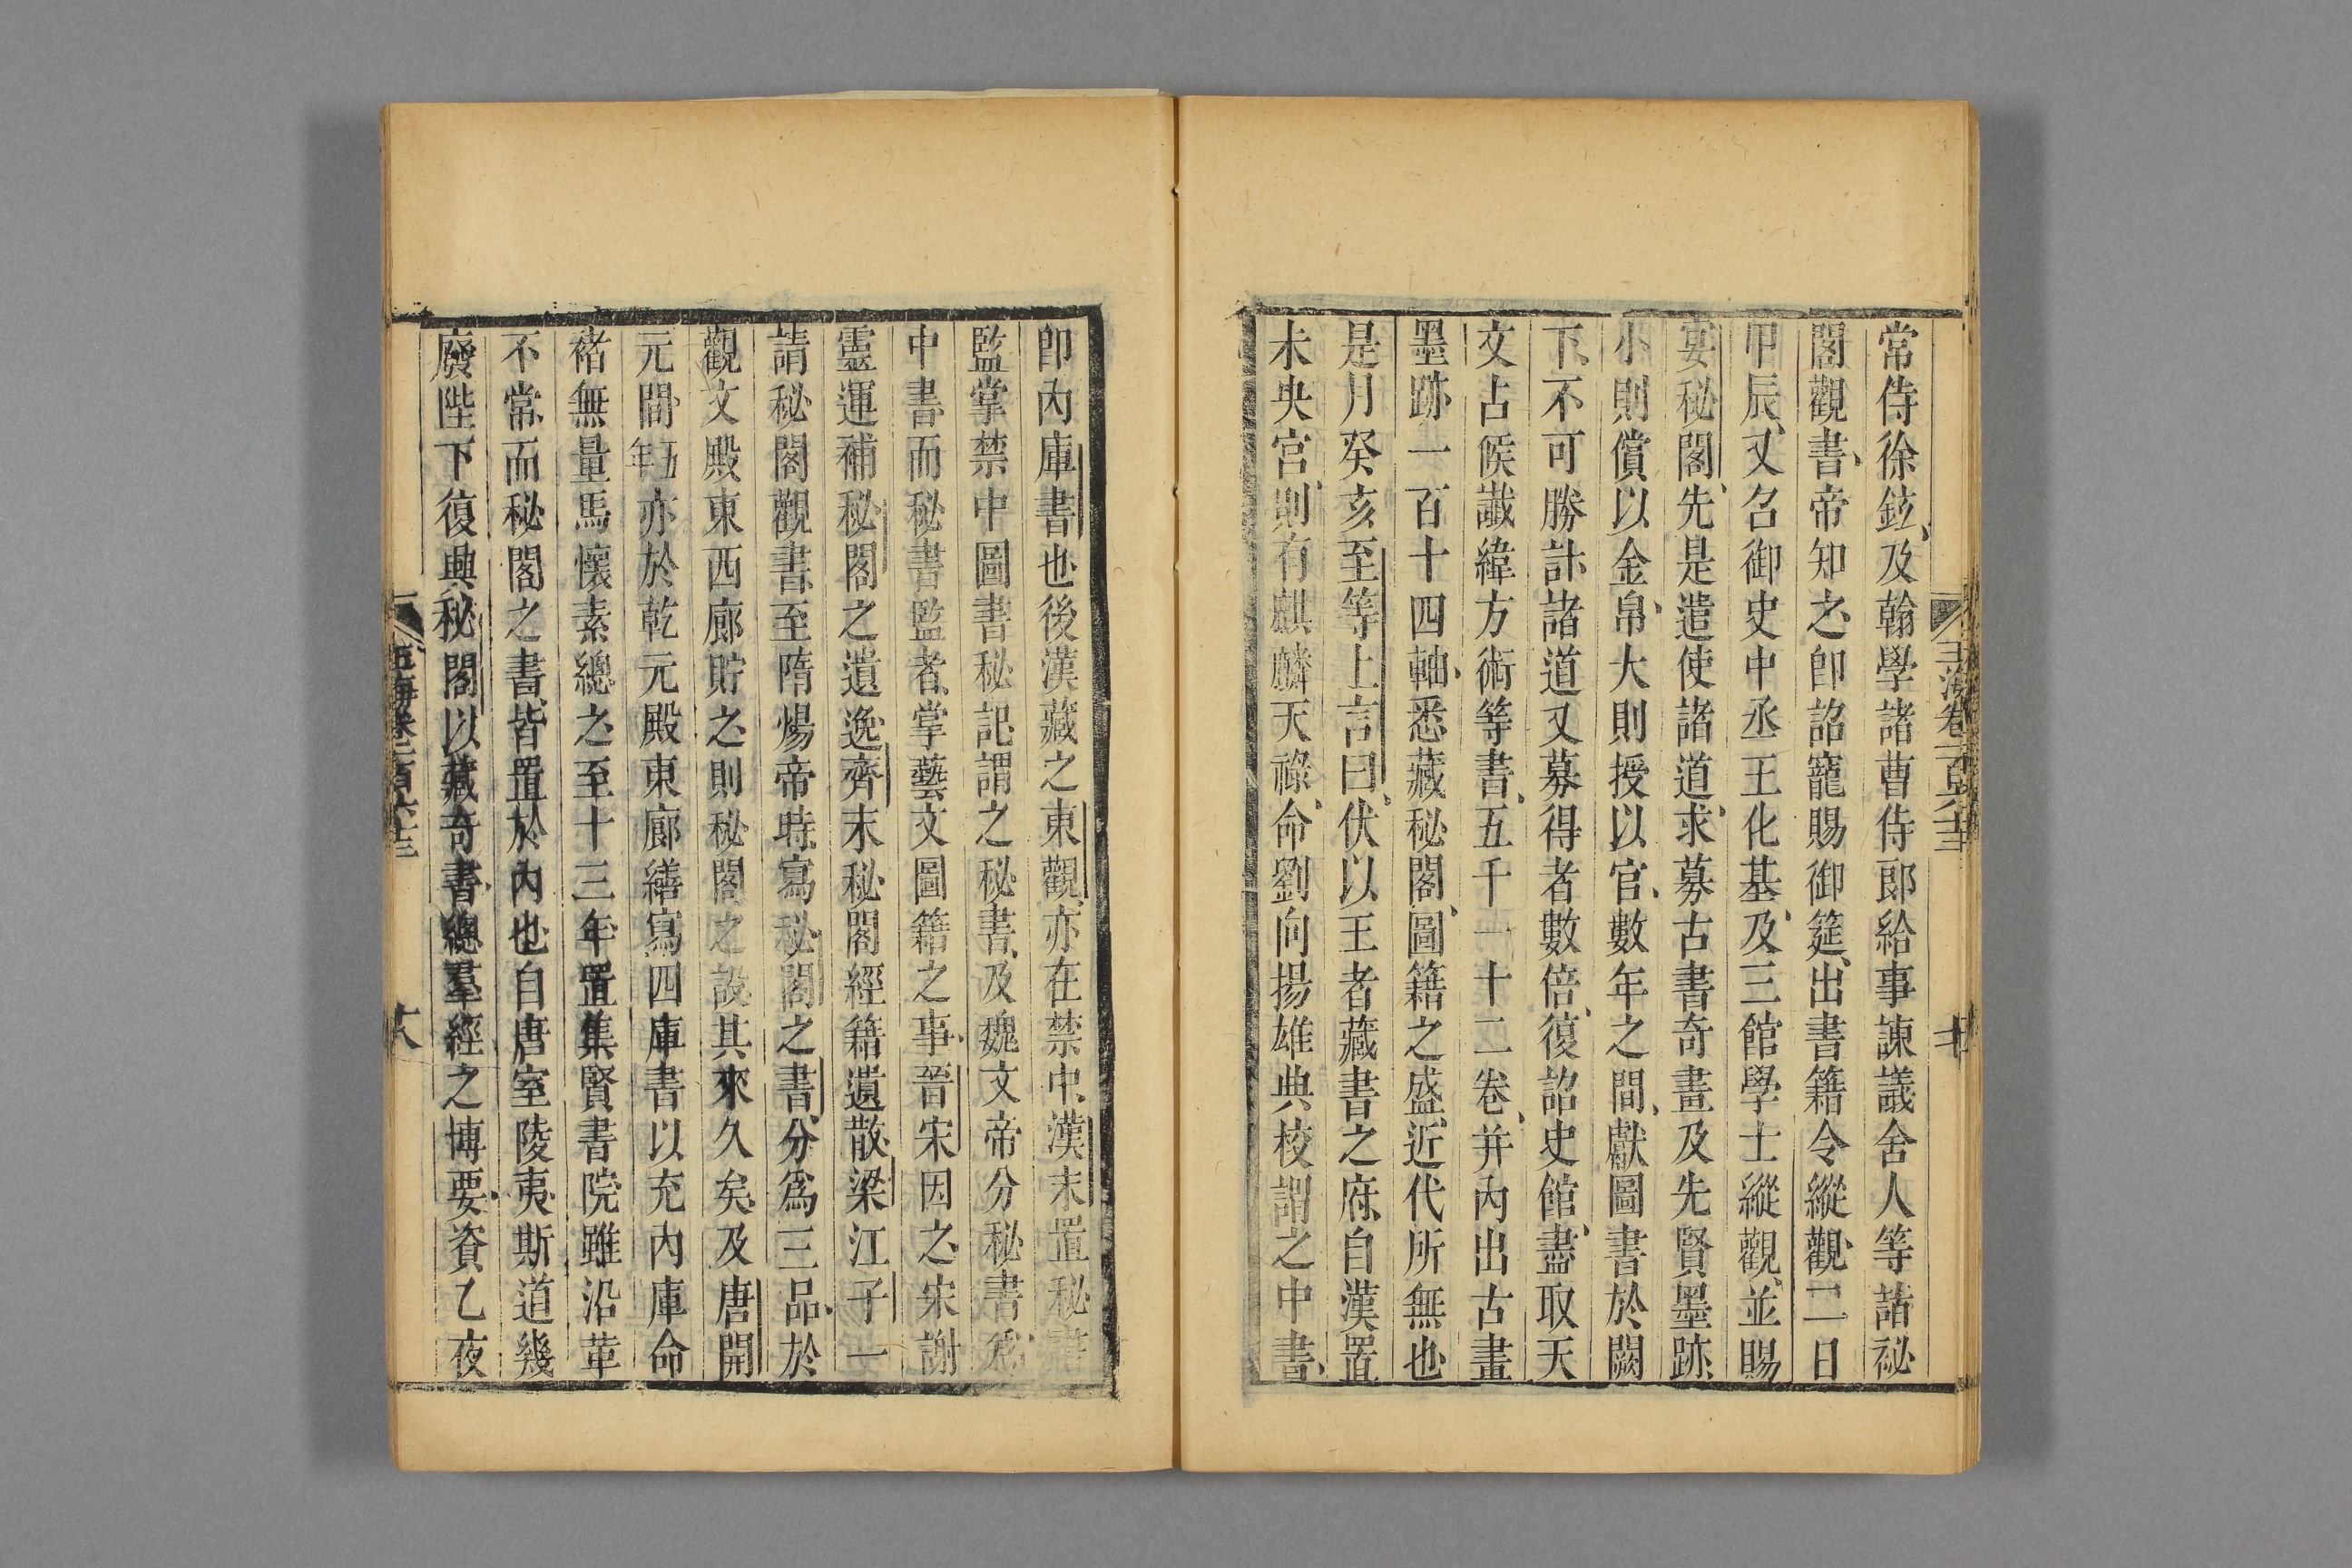 常侍徐鉉、及翰學諸曹侍郞給事諫議舍人等詣祕
閣觀書、帝知之、卽詔寵賜御筵、出書籍令縱觀、二日
甲辰、又召御史中丞王化基、及三館學士縱觀、並賜
宴秘閣、先是遣使諸道、求募古書奇畫及先賢墨跡、
小則償以金帛、大則授以官、數年之間、獻圖書於闕
下、不可勝計、諸道又募得者數倍、復詔史館、盡取天
文占候讖緯方術等書、五千一十二卷、并內出古畫
墨跡一百十四軸、悉藏秘閣、圖籍之盛、近代所無也、
是月癸亥至等上言曰、伏以王者藏書之府、自漢置
未央宮、則有麒麟天祿、命劉向揚雄典校、謂之中書、
玉海卷
卽內庫書也、後漢藏之東觀、亦在禁中、漢末置秘書
監掌禁中圖書秘記、謂之秘書、及魏文帝分秘書爲
中書、而秘書監者、掌藝文圖籍之事、晉宋因之、宋謝
靈運補秘閣之遺逸、齊末秘閣經籍遺散、梁江子一
請秘閣觀書、至隋煬帝時、寫秘閣之書、分爲三品、於
觀文殿東西廊貯之、則秘閣之設、其來久矣、及唐開
元間五年亦於乾元殿東廊繕寫四庫書以充內庫、命
褚無量馬懷素總之、至十三年、置集賢書院、雖沿革
不常、而秘閣之書、皆置於內也、自唐室陵夷、斯道幾
廢、陛下復興秘閣、以藏奇書、總羣經之博要、資乙夜
玉海卷一百六十三